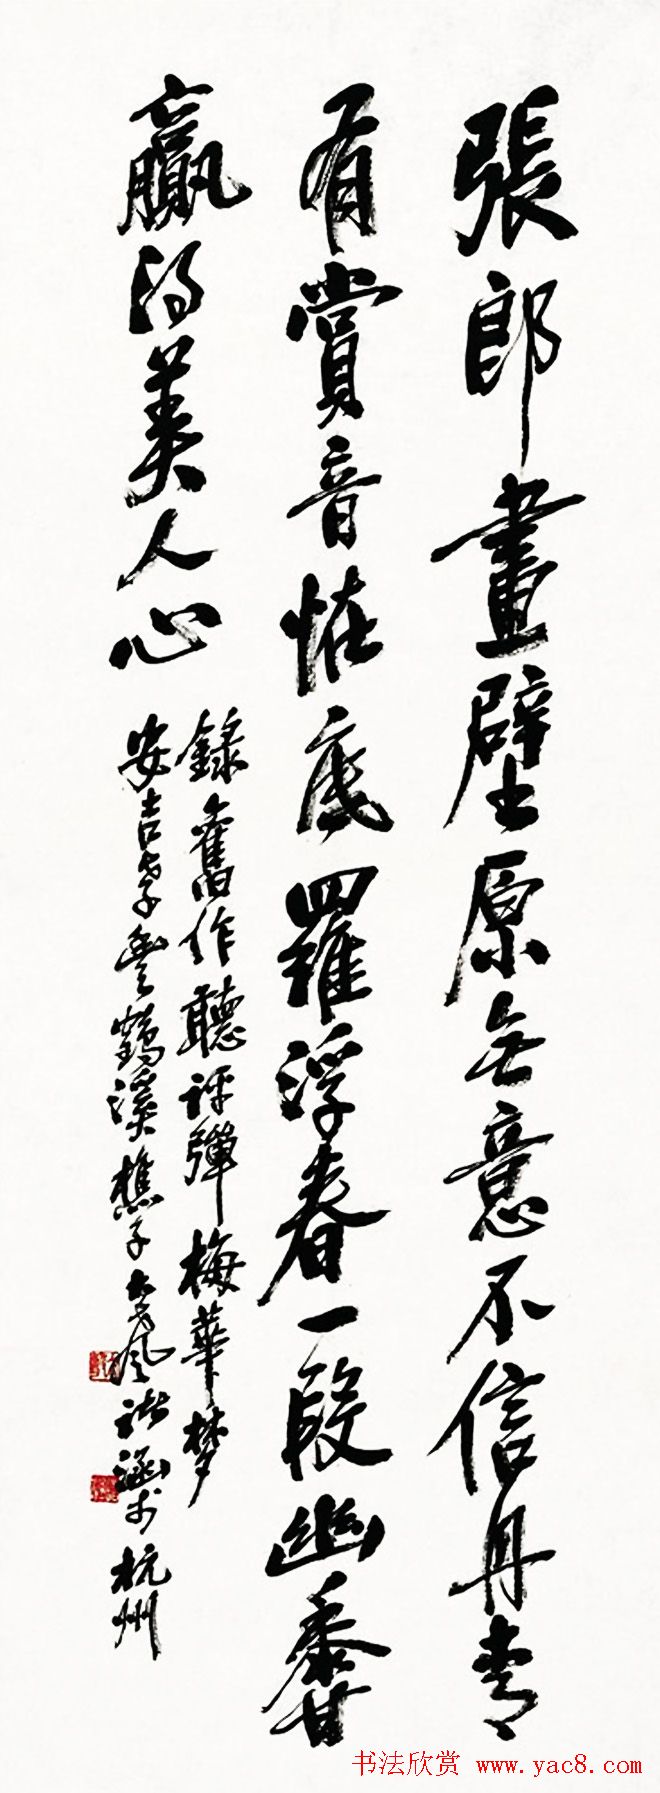 張郎畫壁原無意不信丹青
有賞音怪底羅浮春一段幽香
贏得美人心
錄舊作聽評彈梅華夢
安吉 鶴溪樵子 風 涵於杭州
书法欣赏 www.yac8.com